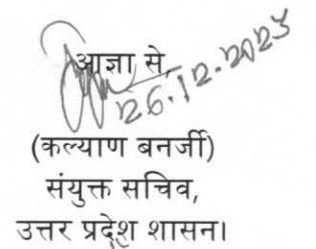 आज्ञा से,
26.12.2023
(कल्याण बनर्जी)
संयुक्त सचिव,
उत्तर प्रदेश शासन।